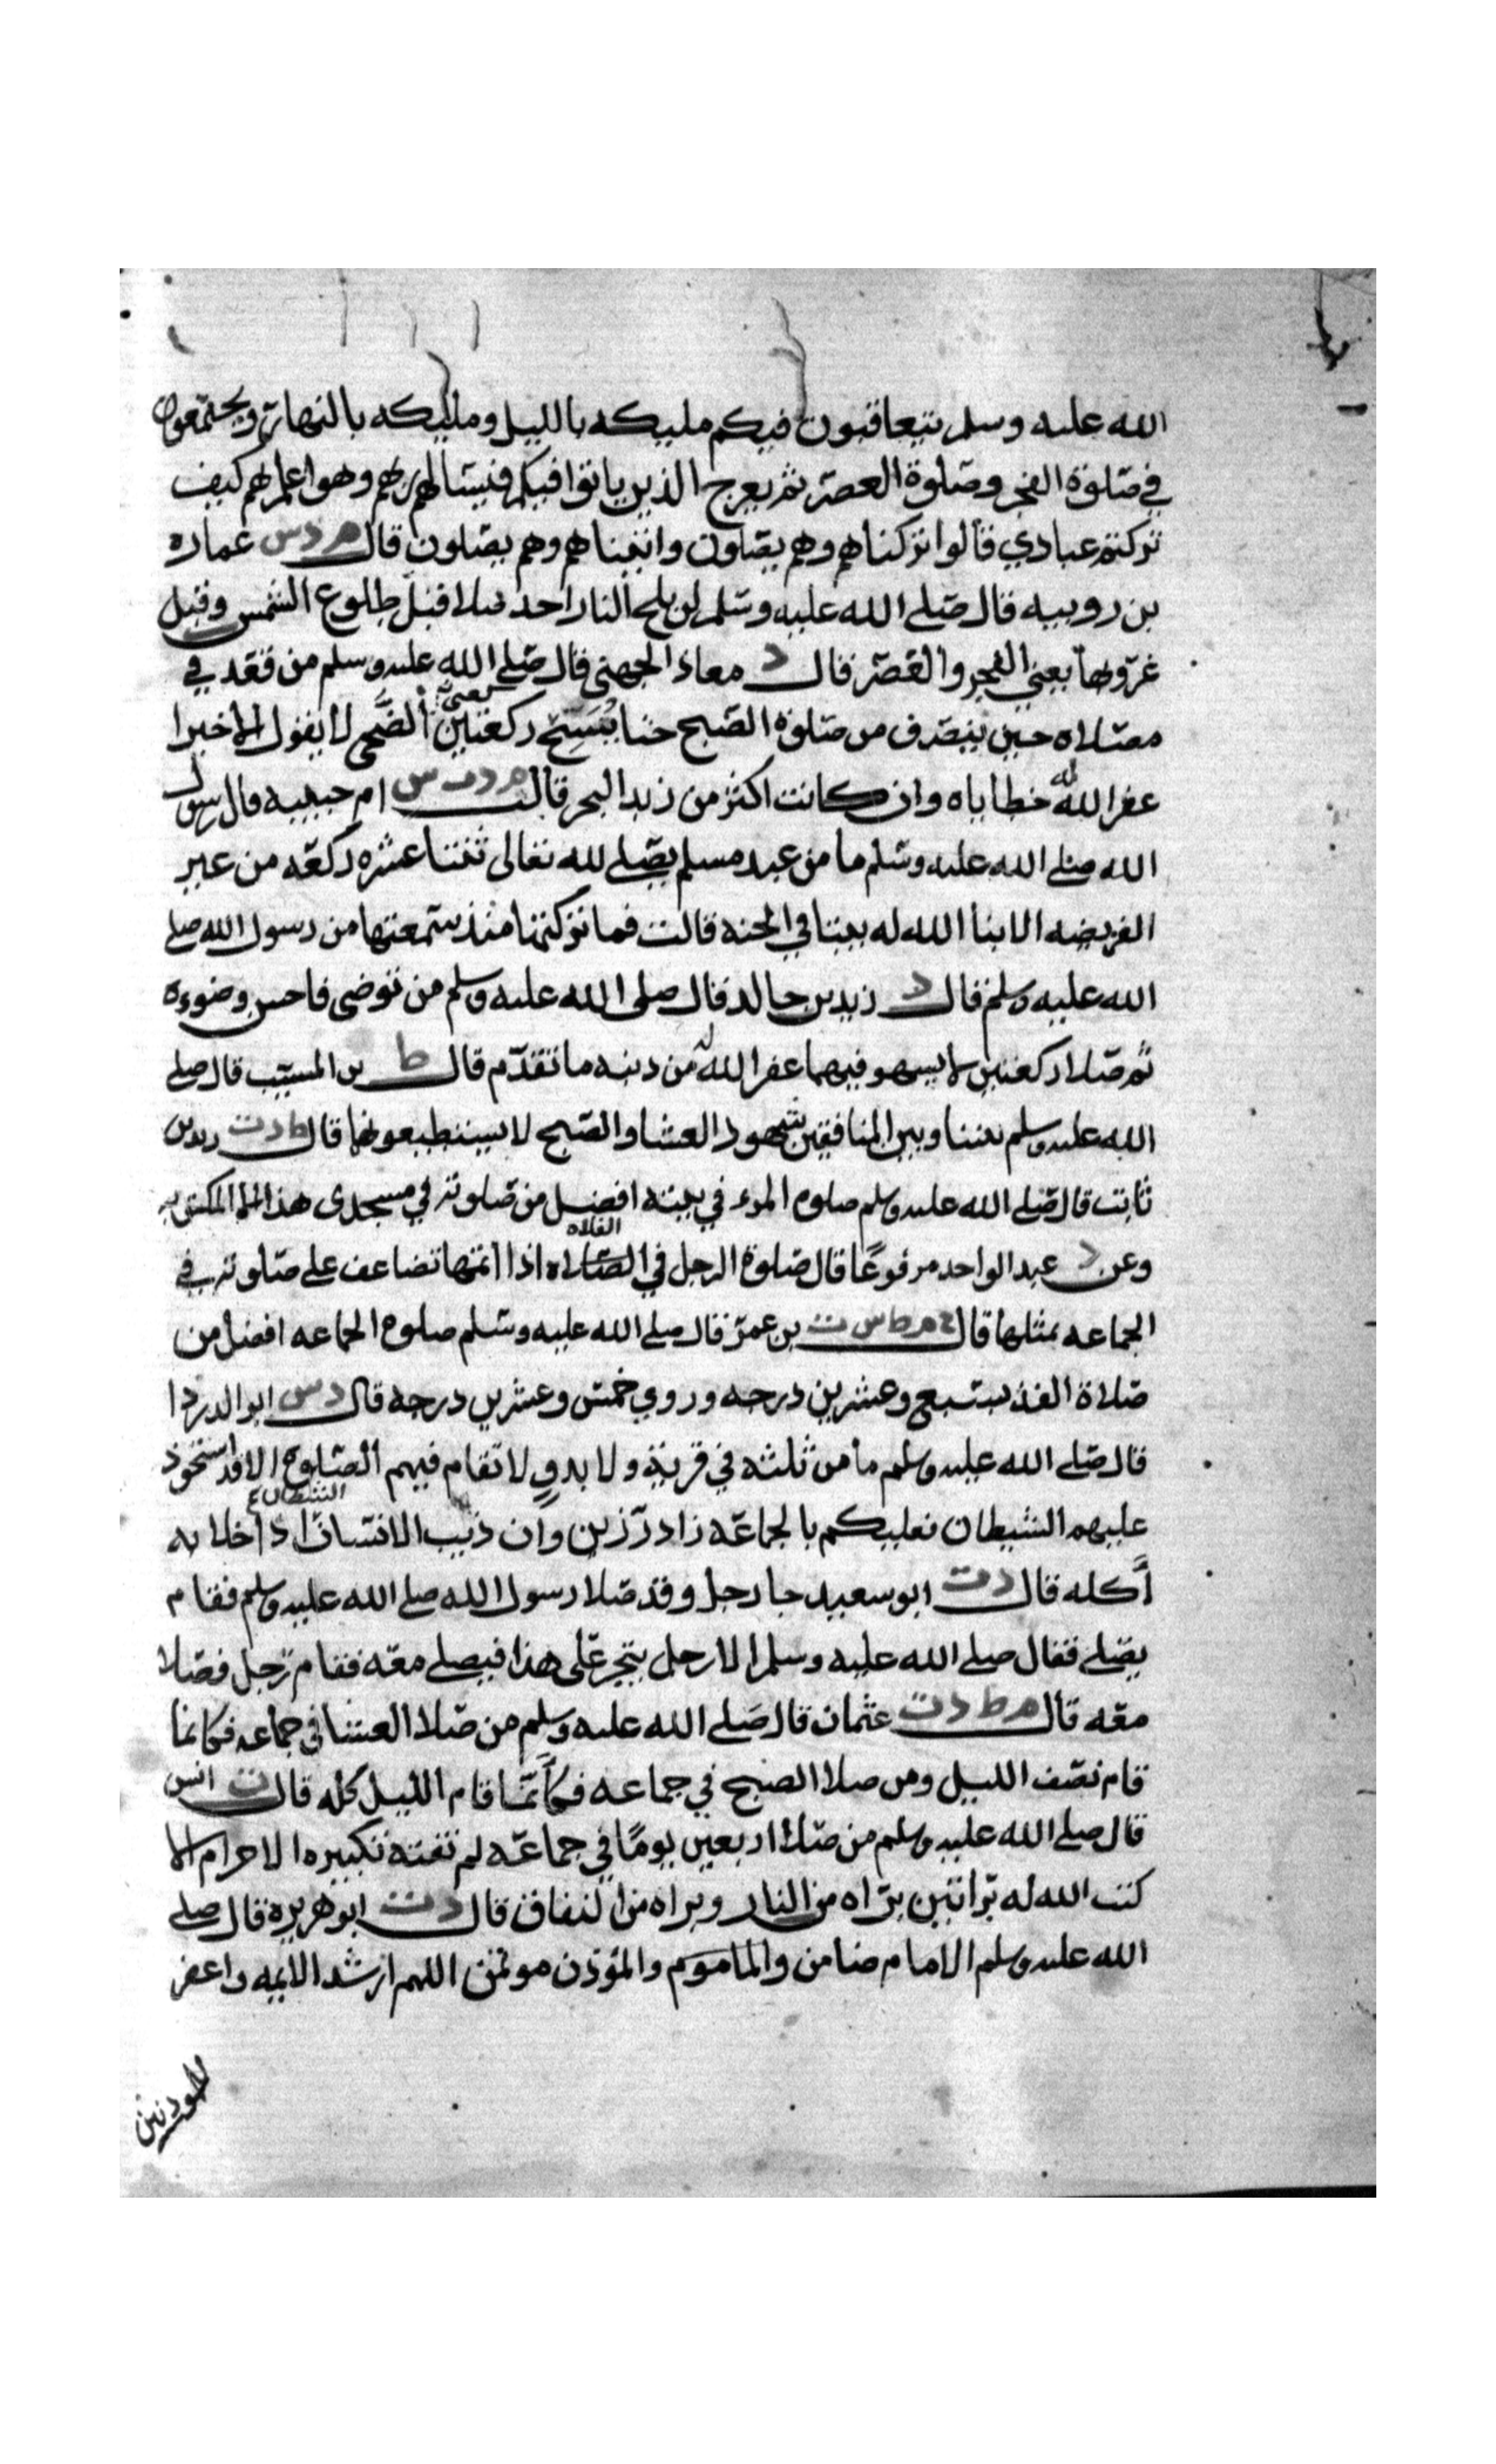 الله عليه وسلم يتعاقبون فيكم مليكه بالليل ومليكه بالنهار ويجتمعون
في صلوة الفجر وصلوة العصر ثم يعرج الذين باتوا فيكم فيسالهم ربهم وهو اعلم بهم كيف
تركتم عبادي قالوا تركناهم وهم يصلون واتيناهم وهم يصلون قال م د س عماره
بن رويبه قال صلى الله عليه وسلم لن يلج النار احد صلا قبل طلوع الشمس وقبل
غروبها يعني الفجر والعصر قال د معاذ الجهني قال صلى الله عليه وسلم من قعد في
مصلاه حين ينصرف من صلوة الصبح حتا يُسَبِّح ركعتين الضُّحى لا يقول الا خيرا
غفر الله له خطاياه وان كانت اكثر من زبد البحر قالت م د ت س ام حبيبه قال رسول
الله صلى الله عليه وسلم ما من عبد مسلم يصلى لله تعالى ثنتا عشره ركعه من غير
الفريضه الا بنا الله له بيتا في الجنه قالت فما تركتها منذ سمعتها من رسول الله صلى
الله عليه وسلم قال د زيد بن خالد قال صلى الله عليه وسلم من توضى فاحسن وضوءه
ثم صلا ركعتين لا يسهو فيهما غفر الله له من ذنبه ما تقدم قال ط بن المسيب قال صلى
الله عليه وسلم بيننا وبين المنافقين شهود العشا والصبح لا يستطيعونها قال ط د ت زيد بن
ثابت قال صلى الله عليه وسلم صلوه المرء في بيته افضل من صلوته في مسجدى هذا الا المكتوبه
وعن د عبد الواحد مرفوعًا قال صلوة الرجل في الفلاه اذا اتمها تضاعف على صلوته في
الجماعه بمثلها قال خ م ط س ت بن عمر قال صلى الله عليه وسلم صلوه الجماعه افضل من
صلاة الفذ بسبع وعشرين درجه وروي خمس وعشرين درجه قال د س ابو الدردا
قال صلى الله عليه وسلم ما من ثلثه في قرية ولا بدوٍ لا تقام فيهم الصلوة الا قد استحوذ
عليهم الشيطان فعليكم بالجماعه زاد رزين وان ذيب الانسان الشيطان اذا خلا به
أكله قال د ت ابو سعيد جا رجل وقد صلا رسول الله صلى الله عليه وسلم فقام
يصلى فقال صلى الله عليه وسلم الا رجل يتجر على هذا فيصلى معه فقام رجل فصلا
معه قال م ط د ت عثمان قال صلى الله عليه وسلم من صلا العشا في جماعه فكانما
قام نصف الليل ومن صلا الصبح في جماعه فكأنما قام الليل كله قال ت انس
قال صلى الله عليه وسلم من صلا اربعين يومًا في جماعه لم تفته تكبيره الاحرام الا
كتب الله له براتين براه من النار وبراه من النفاق قال د ت ابو هريره قال صلى
الله عليه وسلم الامام ضامن والماموم والمؤذن موتمن اللهم ارشد الايمه واغفر
للموذنين